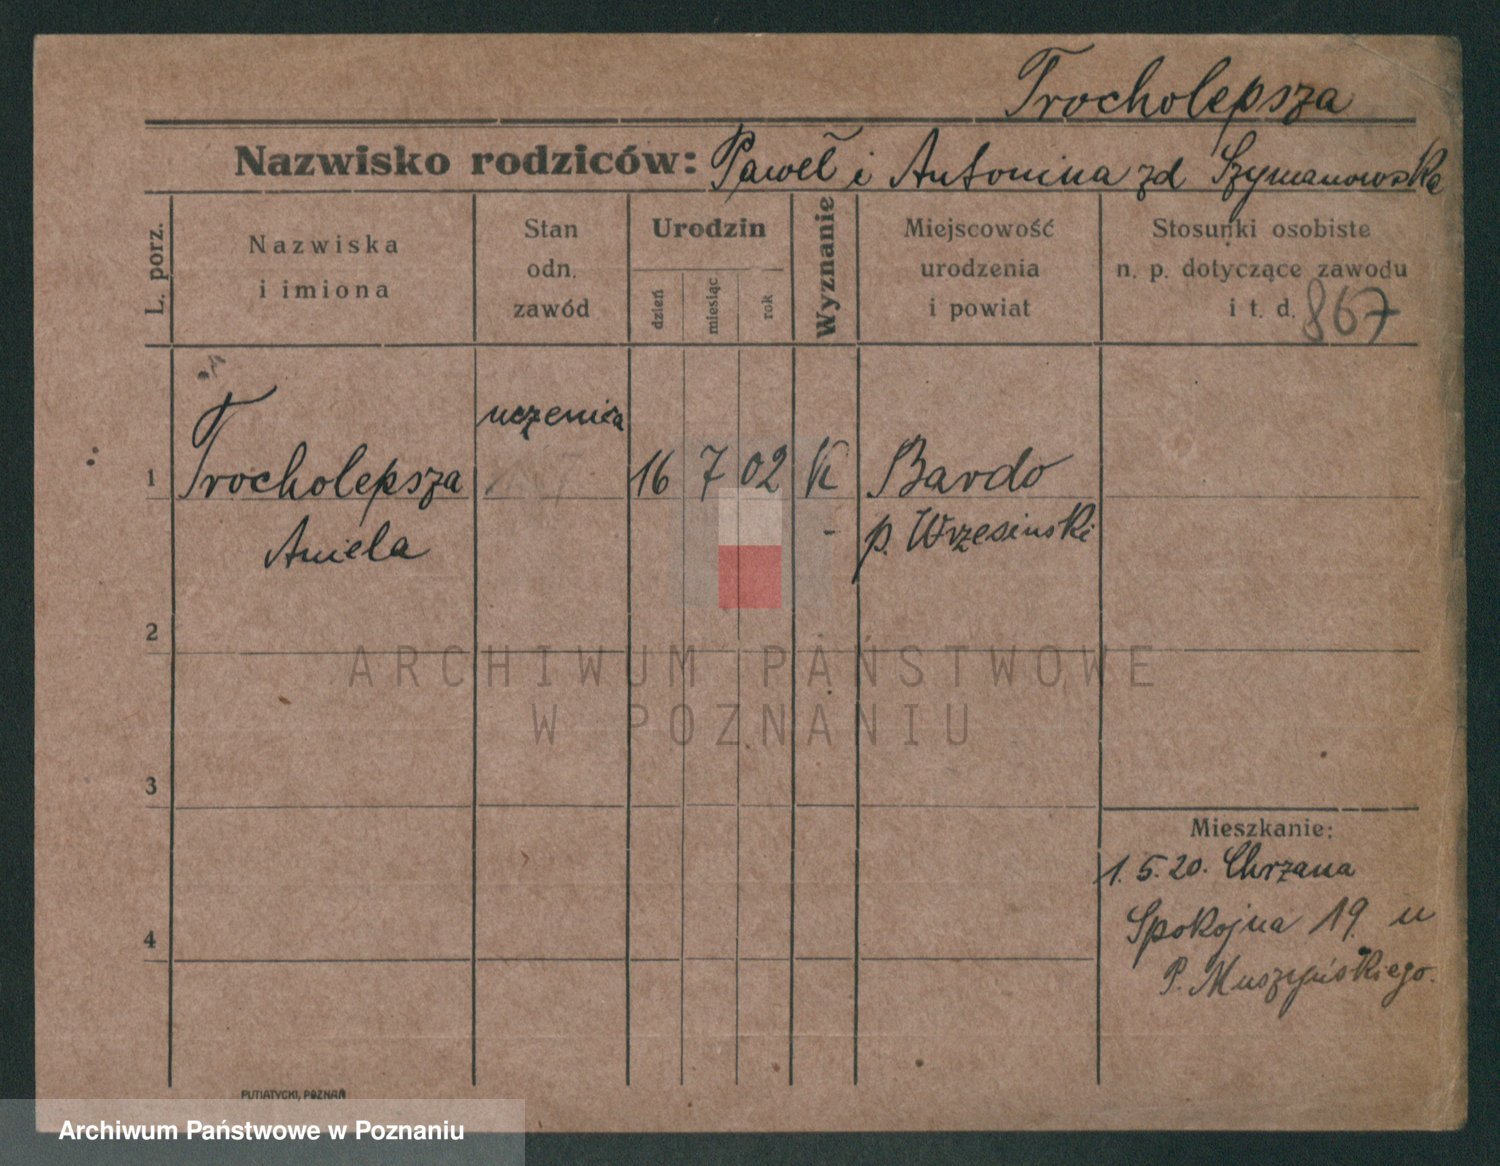 Trocholepsza
Nazwisko rodziców: Paweł i Antonina zd Szymanowska
L. porz.
Nazwiska
i imiona
Stan
odn.
zawód
Urodzin
dzień
miesiąc
rok
Wyznanie
Miejscowość
urodzenia
i powiat
Stosunki osobiste
n. p. dotyczące zawodu
i t. d. 867
uczenica
1 Trocholepsza 16 7 02 K Bardo
Aniela - p. Wrzesinski
2
ARCHIWUM PAŃSTWOWE
W POZNANIU
3
Mieszkanie:
1.5.20. Chrzana
Spokojna 19 u
4
P. Muszyńskiego.
PUTIATYCKI, POZNAŃ
Archiwum Państwowe w Poznaniu